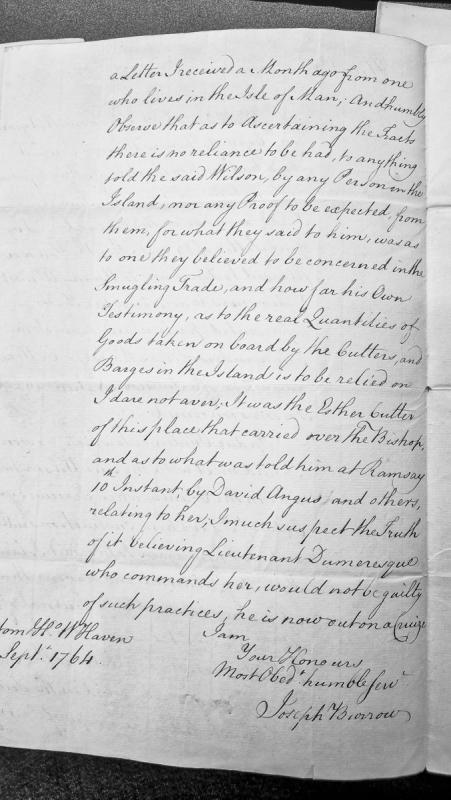 a Letter I received a Month ago from one
who lives in the Isle of Man; And humbly
Observe that as to Ascertaining the Facts
there is no reliance to be had, to any thing
told the said Wilson, by any Person in the
Island, nor any Proof to be expected, from
them, for what they said to him, was as
to one they believed to be concerned in the
Smugling Trade, and how far his Own
Testimony, as to the real Quantities of
Goods taken on board by the Cutters, and
Barges in the Island is to be relied on
I dare not aver; It was the Esther Cutter
of this place that carried over the Bishop,
and as to what was told him at Ramsay
10th Instant, by David Angus, and others,
relating to her, I much suspect the Truth
of it believing Lieutenant Dumeresque
who commands her, would not be guilty
of such practices, he is now out on a Cruize
I am
Your Honours
Most Obedt. humble Servt
Joseph Burrow
tom Ho. WHaven
Septr. 1764.